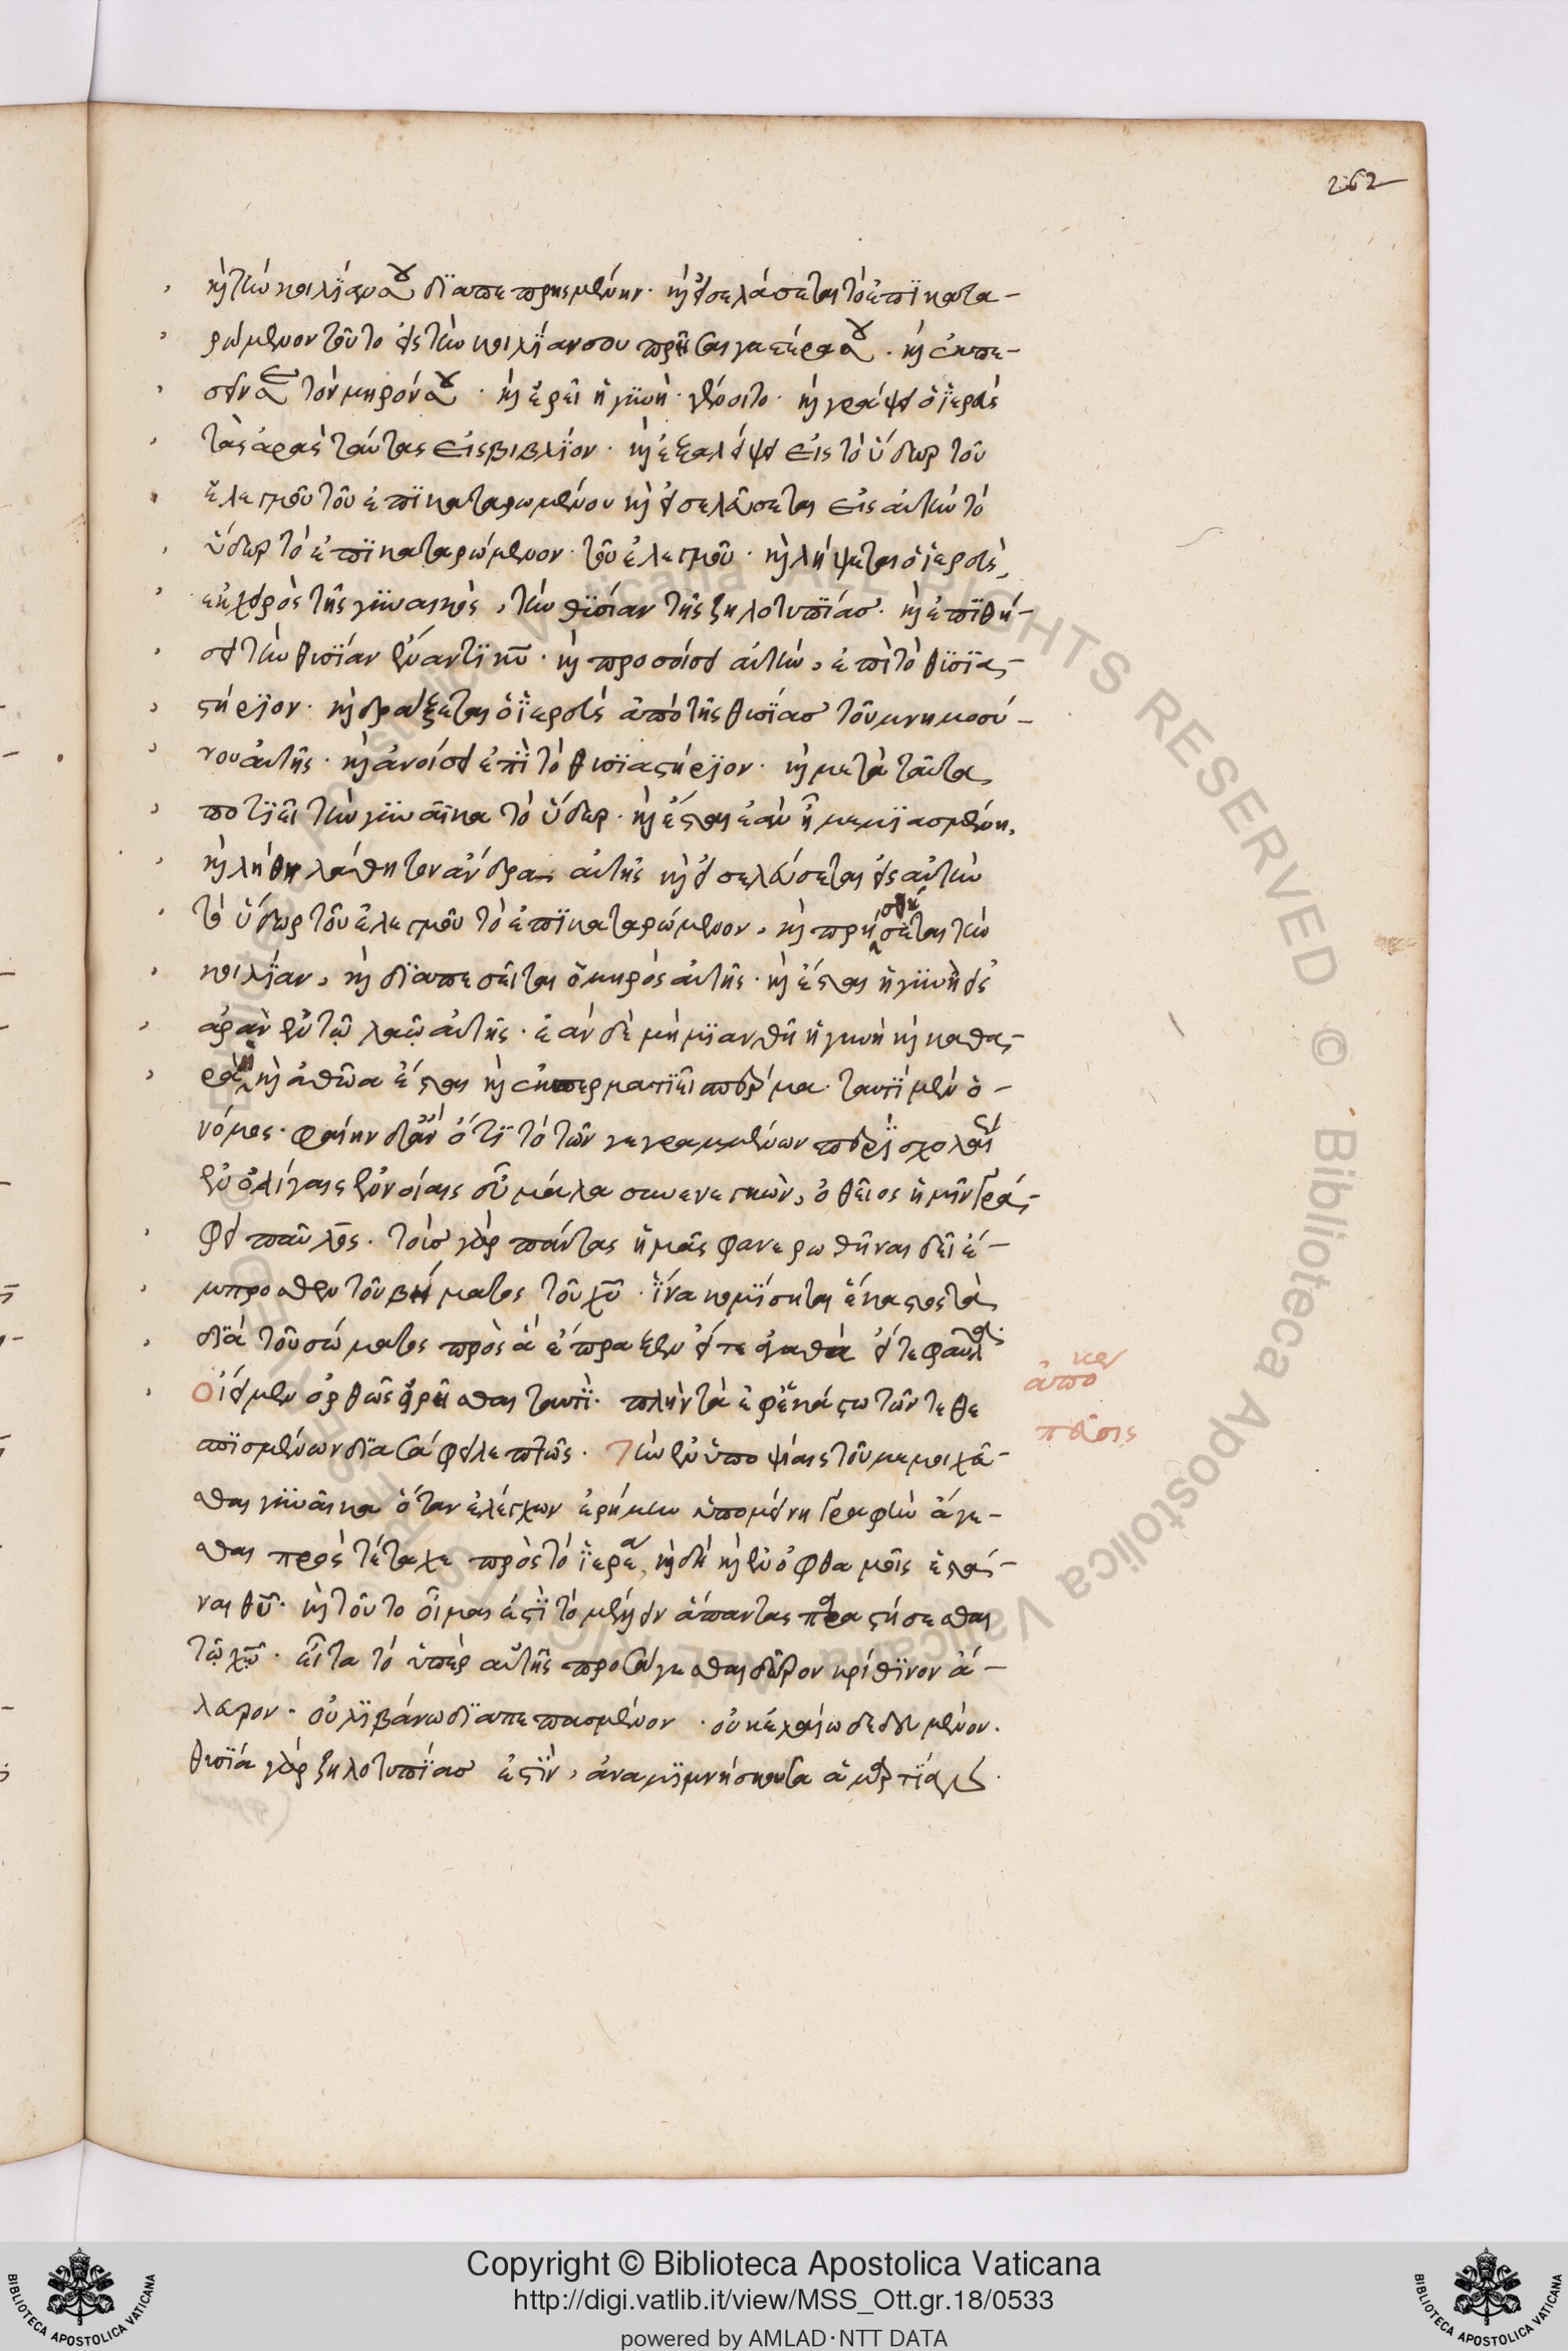 262
καὶ τὴν κοιλίαν σου διαπεπρησμένην. καὶ εἰσελεύσεται τὸ ἐπικατα-
ρώμενον τοῦτο εἰς τὴν κοιλίαν σου πρῆσαι γαστέρα σου. καὶ ἐκπε-
σεῖν τὸν μηρόν σου. καὶ ἐρεῖ ἡ γυνὴ. γένοιτο. καὶ γράψει ὁ ἱερεὺς
τὰς ἀρὰς ταύτας εἰς βιβλίον. καὶ ἐξαλείψει εἰς τὸ ὕδωρ τοῦ
ἐλεγμοῦ τοῦ ἐπικαταρωμένου καὶ εἰσελεύσεται εἰς αὐτὴν τὸ
ὕδωρ τὸ ἐπικαταρώμενον. τοῦ ἐλεγμοῦ. καὶ λήψεται ὁ ἱερεὺς,
ἐκ χειρὸς τῆς γυναικὸς, τὴν θυσίαν τῆς ζηλοτυπίας. καὶ ἐπιθή-
σει τὴν θυσίαν ἔναντι κυ. καὶ προσοίσει αὐτὴν, ἐπὶ τὸ θυσια-
στήριον. καὶ δράξεται ὁ ἱερεὺς ἀπὸ τῆς θυσίας τοῦ μνημοσύ-
νου αὐτῆς. καὶ ἀνοίσει ἐπὶ τὸ θυσιαστήριον. καὶ μετὰ ταῦτα
ποτιεῖ τὴν γυναῖκα τὸ ὕδωρ. καὶ ἔσται ἐὰν ᾖ μεμιασμένη,
καὶ λήθη λάθη τὸν ἄνδρα αὐτῆς καὶ εἰσελεύσεται εἰς αὐτὴν
τὸ ὕδωρ τοῦ ἐλεγμοῦ τὸ ἐπικαταρώμενον, καὶ πρησθήσεται τὴν
κοιλίαν, καὶ διαπεσεῖται ὁ μηρὸς αὐτῆς. καὶ ἔσται ἡ γυνὴ εἰς
ἀρὰν ἐν τῷ λαῷ αὐτῆς. ἐὰν δὲ μὴ μιανθῆ ἡ γυνὴ καὶ καθα-
ρὰ καὶ ἀθῶα ἔσται καὶ ἐκσπερματιεῖ σπέρμα. ταυτὶ μὲν ὁ
νόμος. φαίην δ' ἂν ὅτι τὸ τῶν γεγραμμένων περι
ἐν ὀλίγαις ἐννοίαις εὖ μάλα συνενεγκὼν, ὁ θεῖος ἡμῖν γρά-
φει παῦλος. τοὺς γὰρ πάντας ἡμᾶς φανερωθῆναι δεῖ ἔ-
μπροσθεν τοῦ βήματος τοῦ χυ. ἵνα κομίσηται ἕκαστος τὰ
διὰ τοῦ σώματος πρὸς ἃ ἔπραξεν εἴτε ἀγαθὰ εἴτε φαῦλα.
Οἶμεν ὀρθῶς εἰρῆσθαι ταυτὶ. πλὴν τὰ ἐφ' ἑκάστω τῶν τεθε-
σπισμένων διασάφει λεπτῶς. Τὴν ἐν ὑποψίαις τοῦ μεμοιχεῦ-
σθαι γυναῖκα ὅταν ἐλέγχων ἐρήμην ὑπομείνη γραφὴν ἄγε-
σθαι προστέταχε πρὸς τὸ ἱερέα, καὶ δὴ καὶ ἐν ὀφθαλμοῖς ἑστά-
ναι θυ. καὶ τοῦτο οἶμαι ἐστὶ τὸ μέλλειν ἅπαντας παραστήσεσθαι
τῷ χῷ. εἶτα τὸ ὑπὲρ αὐτῆς προσάγεσθαι δῶρον κρίθινον ἄ-
λευρον. οὐ λιβάνω διαπεπασμένον. οὐκ ἐλαίω δεδευμένον.
θυσία γὰρ ζηλοτυπίας ἐστὶν, ἀναμιμνήσκουσα ἁμαρτίας.
ἀπόκρισις